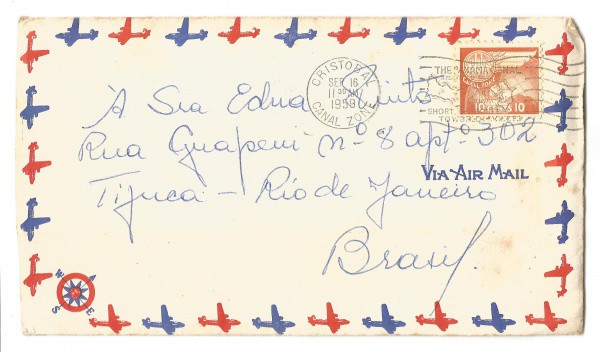 CRISTOBAL
SEP 16
11 30 AM
1958
CANAL ZONE
THE
SHORT
TO WORLD MARKETS
CANAL ZONE
10 CENTS 10
A Sra Edna Pinto
Rua Guapeni nº 8 aptº 302
Tijuca - Rio de Janeiro
Brasil.
VIA AIR MAIL
W
S
E